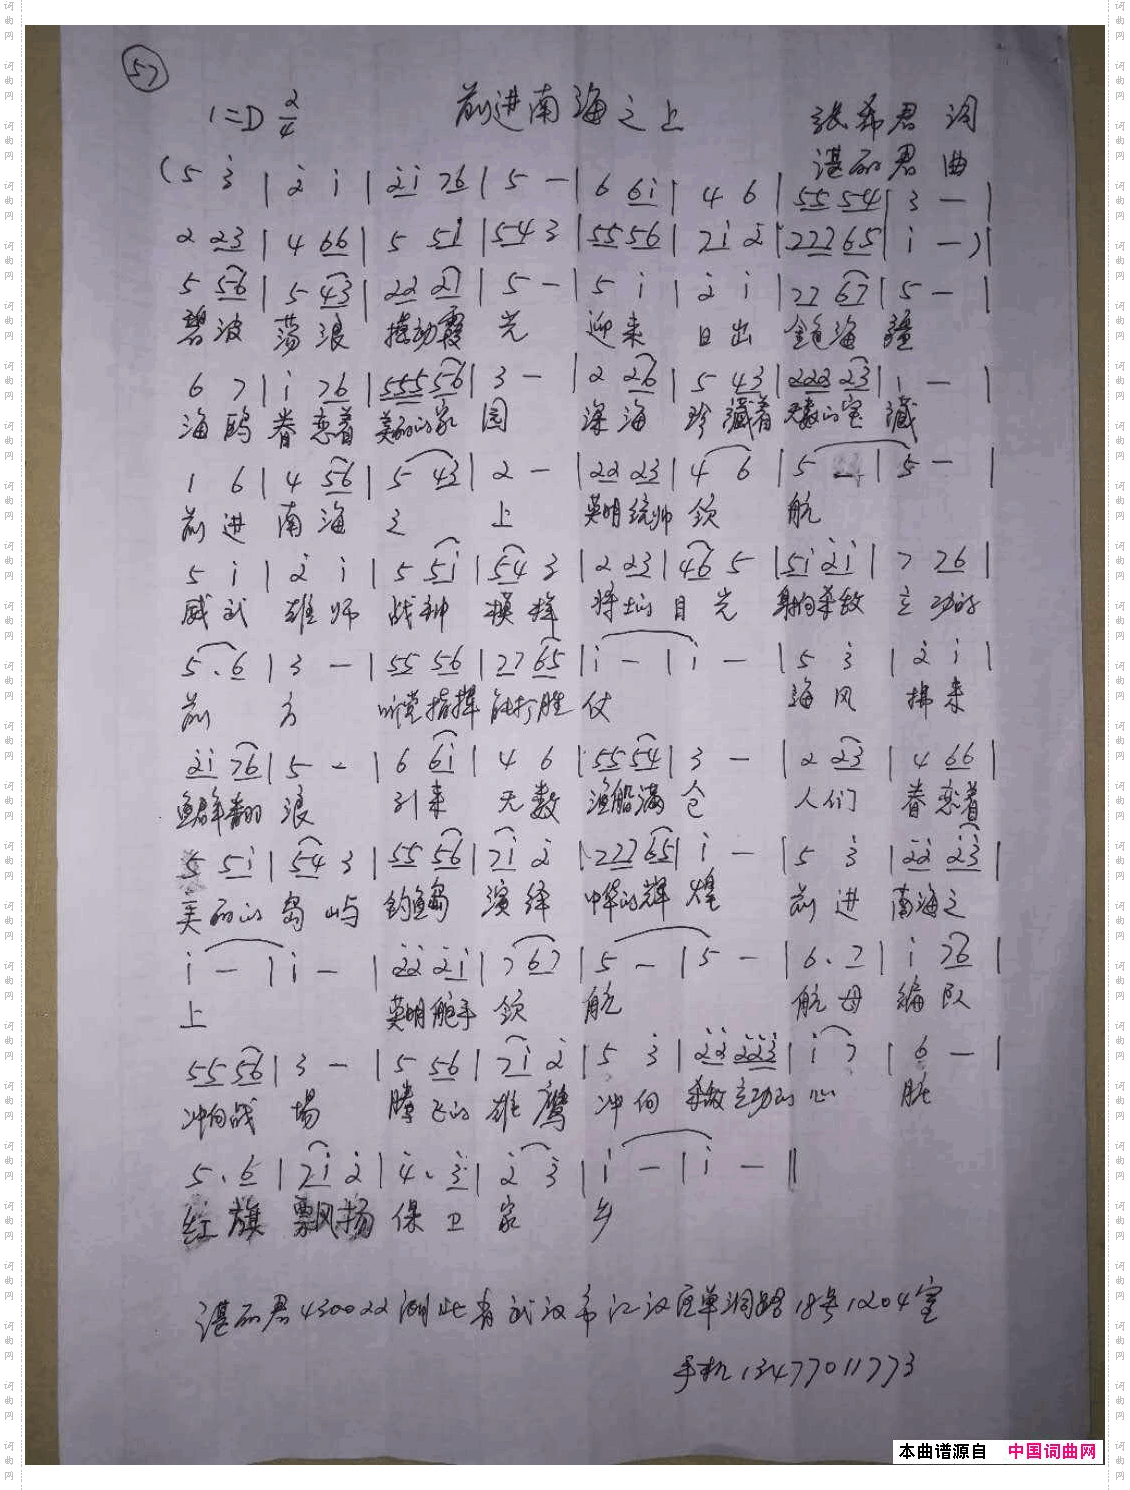 57
1=D 2/4 前进南海之上 张希君 词
谌丽君 曲
(5 3̇ | 2̇ 1̇ | 2̇1̇ 76 | 5 — | 6 61̇ | 4 6 | 55 54 | 3 — |
2 23 | 4 66 | 5 51̇ | 54 3 | 55 56 | 71̇ 2̇ | 277 65 | 1̇ —)|
5 56 | 5 43 | 22 27 | 5 — | 5 1̇ | 2̇ 1̇ | 77 67 | 5 — |
碧波 荡浪 摇动霞 光 迎来 日出 金色海 疆
6 7 | 1̇ 76 | 555 56 | 3 — | 2 26 | 5 43 | 222 23 | 1 — |
海鸥 眷恋着 美丽的家 园 深海 珍藏着 无数的宝 藏
1 6 | 4 56 | 5 43 | 2 — | 22 23 | 4 6 | 5 — | 5 — |
前进 南海 之 上 英明统帅 领 航
5 1̇ | 2̇ 1̇ | 5 51̇ | 54 3 | 2 23 | 46 5 | 51̇ 2̇1̇ | 7 76 |
威武 雄师 战神 将士的 目光
5. 6 | 3 — | 55 56 | 27 65 | 1̇ — | 1̇ — | 5 3̇ | 2̇ 1̇ |
前 方 听党指挥 能打胜 仗 海风 拂来
2̇1̇ 76 | 5 — | 6 61̇ | 4 6 | 55 54 | 3 — | 2 23 | 4 66 |
鱼群翻 浪 引来 无数 渔船满 仓 人们 眷恋着
5 51̇ | 54 3 | 55 56 | 71̇ 2̇ | 277 65 | 1̇ — | 5 3̇ | 2̇2̇ 2̇3̇ |
美丽的 岛屿 钓鱼岛 演绎 中华的辉 煌 前进 南海之
1̇ — | 1̇ — | 2̇2̇ 2̇1̇ | 7 67 | 5 — | 5 — | 6. 7 | 1̇ 76 |
上 英明舵手 领 航 航母 编队
55 56 | 3 — | 5 56 | 71̇ 2̇ | 5 3̇ | 2̇2̇ 2̇2̇3̇ | 1̇ 7 | 6 — |
冲向战 場 腾飞的 雄鹰 冲向 心 脏
5. 6 | 71̇ 2̇ | 4̇. 3̇ | 2̇ 3̇ | 1̇ — | 1̇ — ‖
红旗 飘扬 保卫 家 乡
谌丽君 430022 湖北省武汉市江汉区单洞路18号1204室
手机 13477011773
本曲谱源自 中国词曲网
词曲网